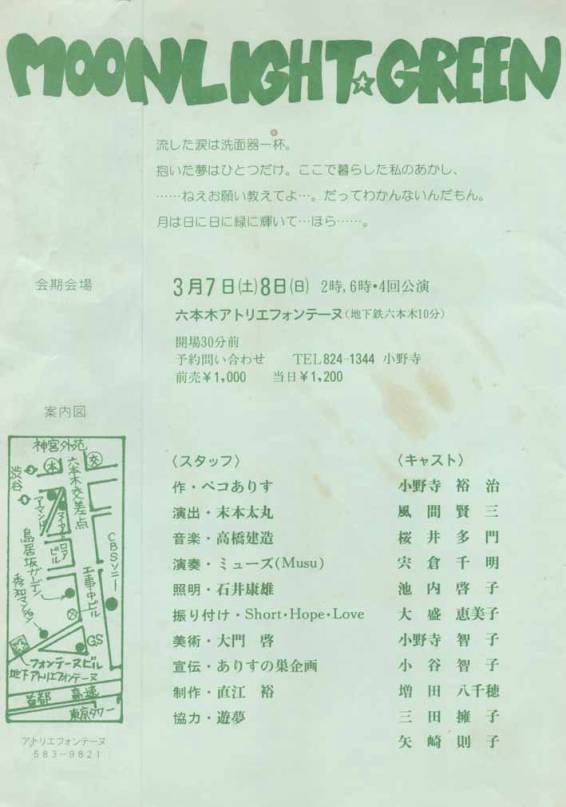 MOONLIGHT☆GREEN
流した涙は洗面器一杯。
抱いた夢はひとつだけ。ここで暮らした私のあかし、
……ねえお願い教えてよ…。だってわかんないんだもん。
月は日に日に緑に輝いて…ほら……。
会期会場
3月7日(土)8日(日) 2時,6時・4回公演
六本木アトリエフォンテーヌ(地下鉄六本木10分)
開場30分前
予約問い合わせ TEL824-1344 小野寺
前売¥1,000 当日¥1,200
案内図
神宮外苑
渋谷
六本木交差点
アマンド
ロアビル
鳥居坂ガーデン
CBSソニー
工事中ビル
GS
フォンテーヌビル
地下アトリエフォンテーヌ
首都高速
東京タワー
アトリエフォンテーヌ
583-9821
〈スタッフ〉
作・ペコありす
演出・末本太丸
音楽・高橋建造
演奏・ミューズ(Musu)
照明・石井康雄
振り付け・Short・Hope・Love
美術・大門 啓
宣伝・ありすの巣企画
制作・直江 裕
協力・遊夢
〈キャスト〉
小野寺 裕 治
風 間 賢 三
桜 井 多 門
宍 倉 千 明
池 内 啓 子
大 盛 恵美子
小野寺 智 子
小 谷 智 子
増 田 八千穂
三 田 擁 子
矢 崎 則 子